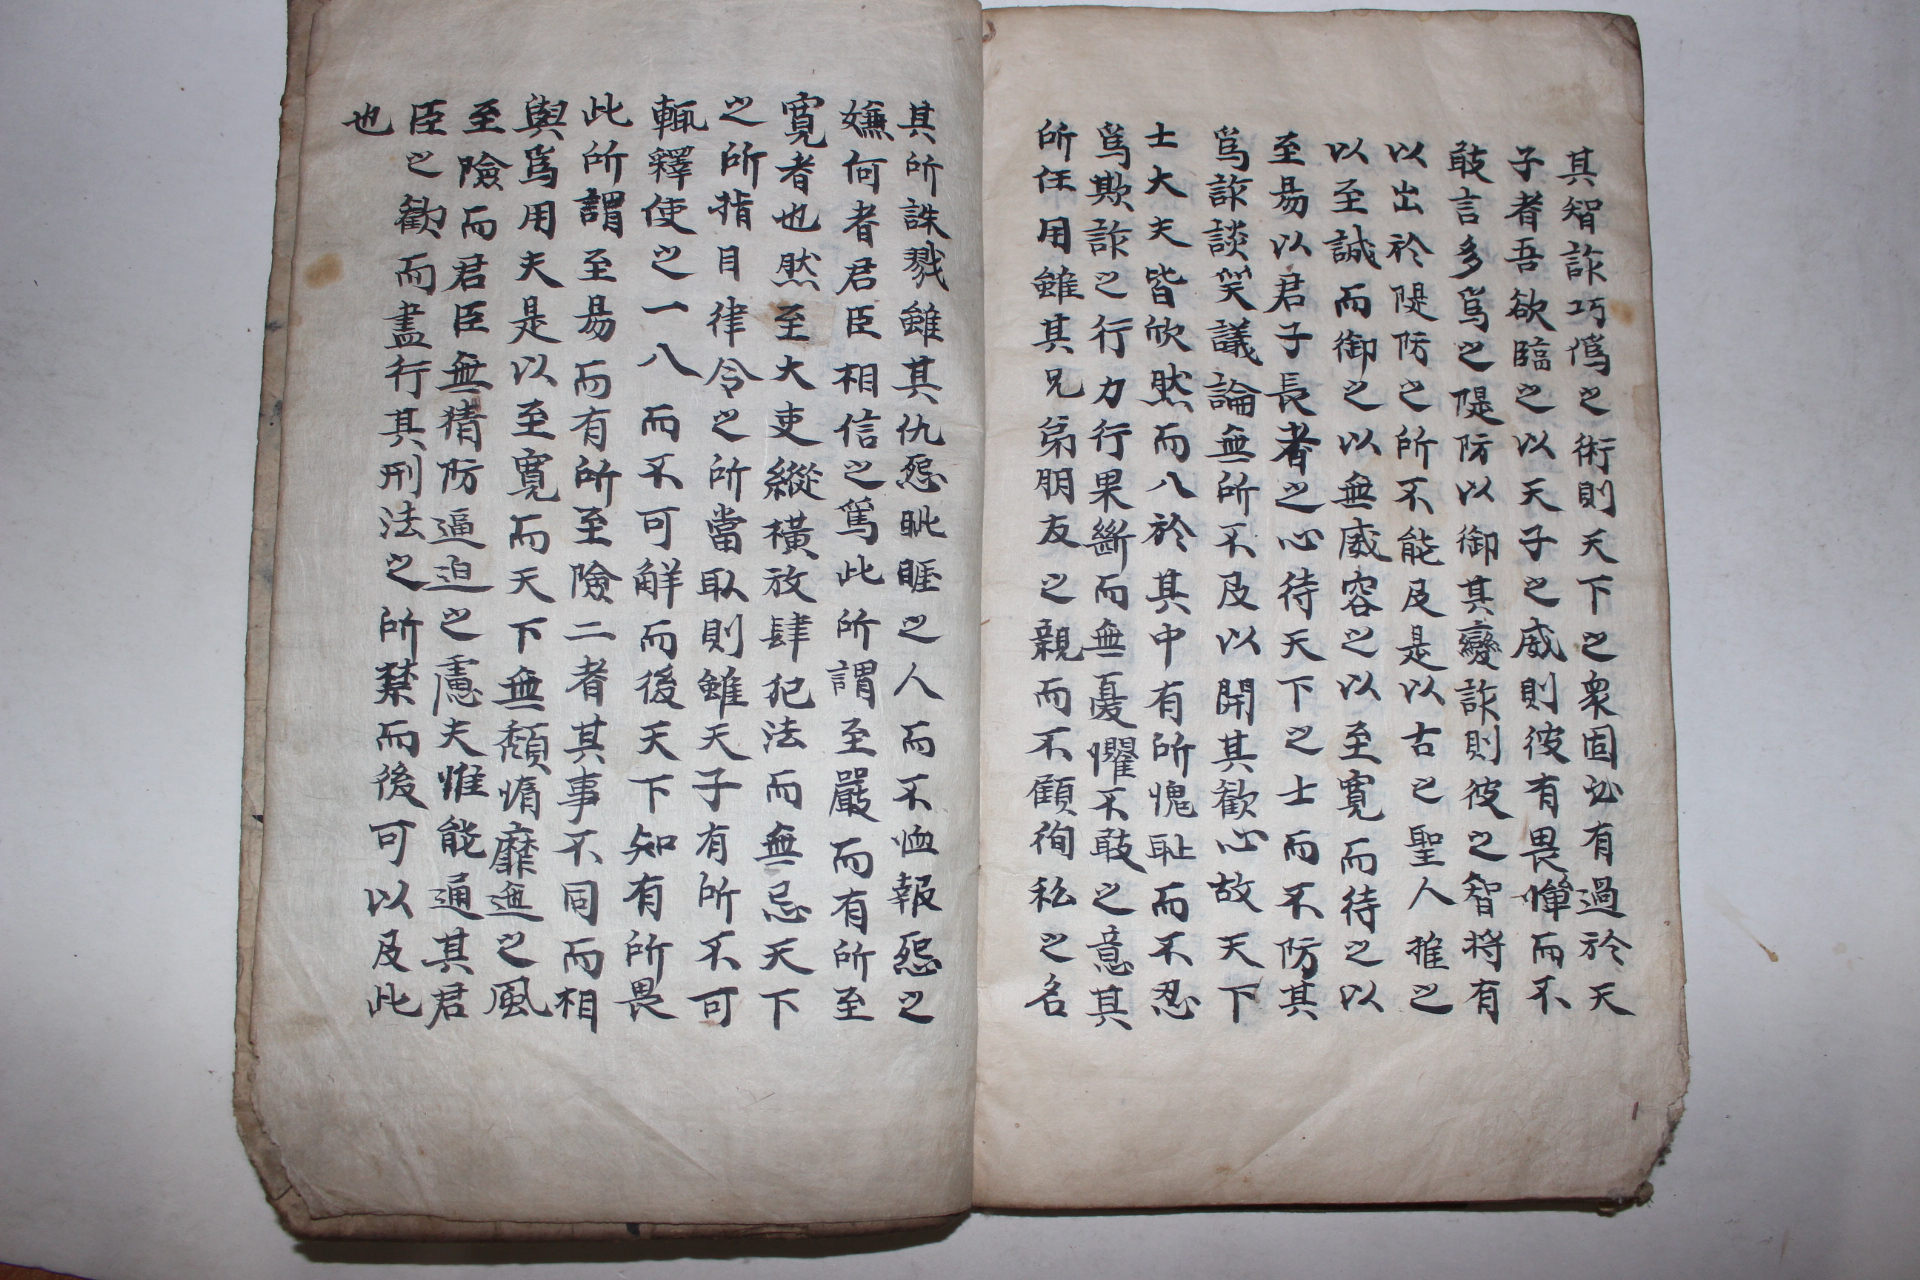 其智詐巧僞之術則天下之衆固必有過於天
子者吾欲臨之以天子之威則彼有畏憚而不
敢言多爲之隄防以御其變詐則彼之智將有
以出於隄防之所不能及是以古之聖人推之
以至誠而御之以無威容之以至寬而待之以
至易以君子長者之心待天下之士而不防其
爲詐談笑議論無所不及以開其歡心故天下
士大夫皆欣然而入於其中有所愧恥而不忍
爲欺詐之行力行果斷而無憂懼不敢之意其
所任用雖其兄弟朋友之親而不顧徇私之名
其所誅戮雖其仇怨眦睚之人而不恤報怨之
嫌何者君臣相信之篤此所謂至嚴而有所至
寬者也然至大吏縱橫放肆犯法而無忌天下
之所指目律令之所當取則雖天子有所不可
輒釋使之一入而不可解而後天下知有所畏
此所謂至易而有所至險二者其事不同而相
與爲用夫是以至寬而天下無頹惰靡迤之風
至險而君臣無猜防逼迫之慮夫惟能通其君
臣之歡而盡行其刑法之所禁而後可以及此
也